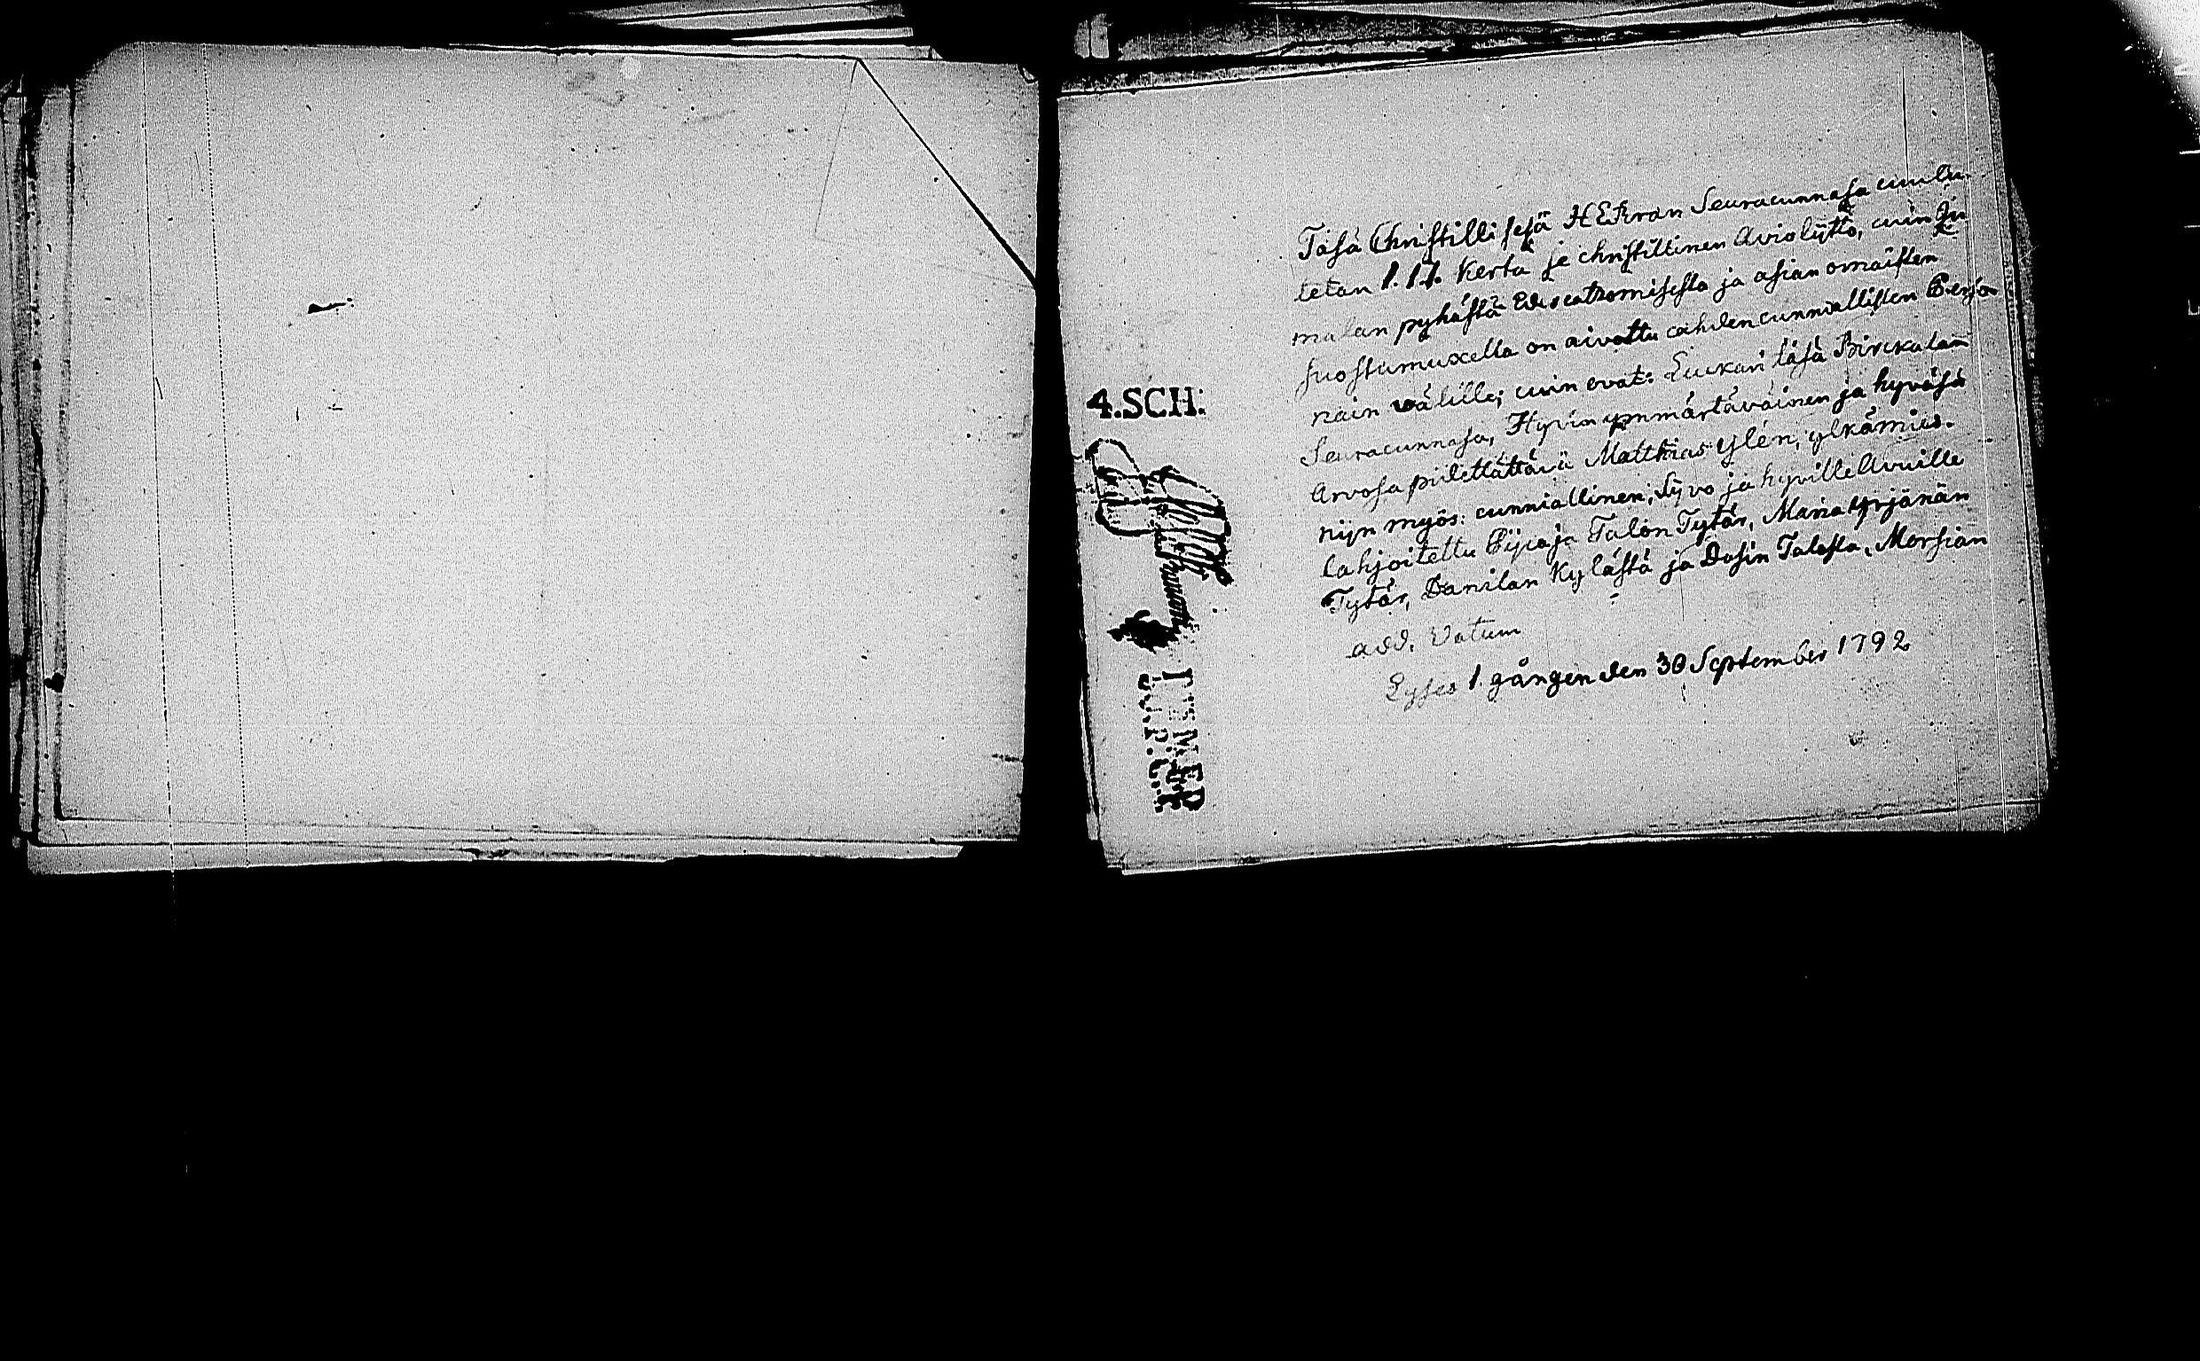 Täsä Christillisesä HERran Seuracunnasa cuulu-
tetan 1. 17. Kerta se christillinen Aviokäsky, cuin Ju
malan pyhästä Edescatzomisesta ja asian omaisten
suostumuxella on aivottu cahden cunniallisten Perso
nain välille; cuin ovat: Luckari täsä Birckalan
Seuracunnasa, Hyvin ymmärtäväinen ja hyväsä
Arvosa pidettättävä Matthias Ylén, ylkämies.
nijn myös: cunniallinen, Syvo ja hyvillä Avuille
Lahjoitettu Pijca ja Talon Tytär, Maria Yrjänän
Tytär, Danilan Kylästä ja Dosin Talosta, Morsian
add. Votum
Lyses 1. gången den 30 September 1792
4.SCH: